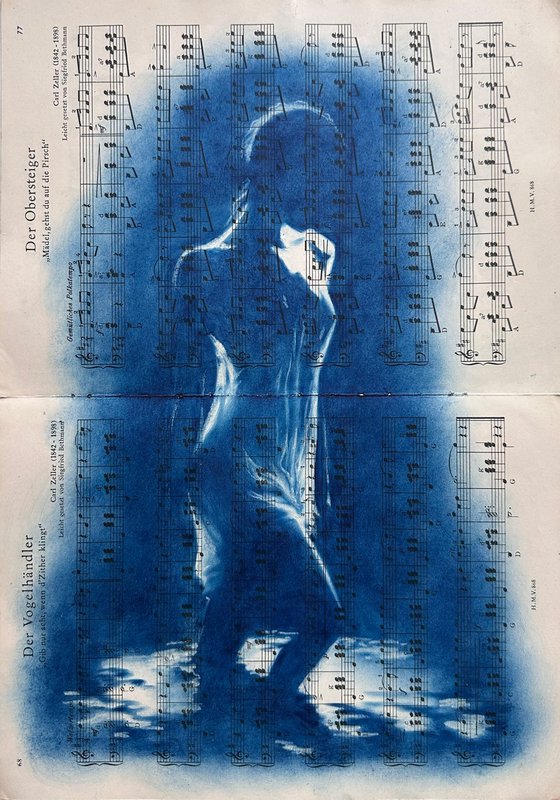 68
Der Vogelhändler
wenn d'Zither klingt“
Carl Zeller (1842 - 1898)
Leicht gesetzt von Siegfried Bethmann
H.M.V. 868
77
Der Obersteiger
„Mädel, gehst du auf die Pirsch“
Carl Zeller (1842 - 1898)
Leicht gesetzt von Siegfried Bethmann
Gemütliches Polkatempo
H.M.V. 868